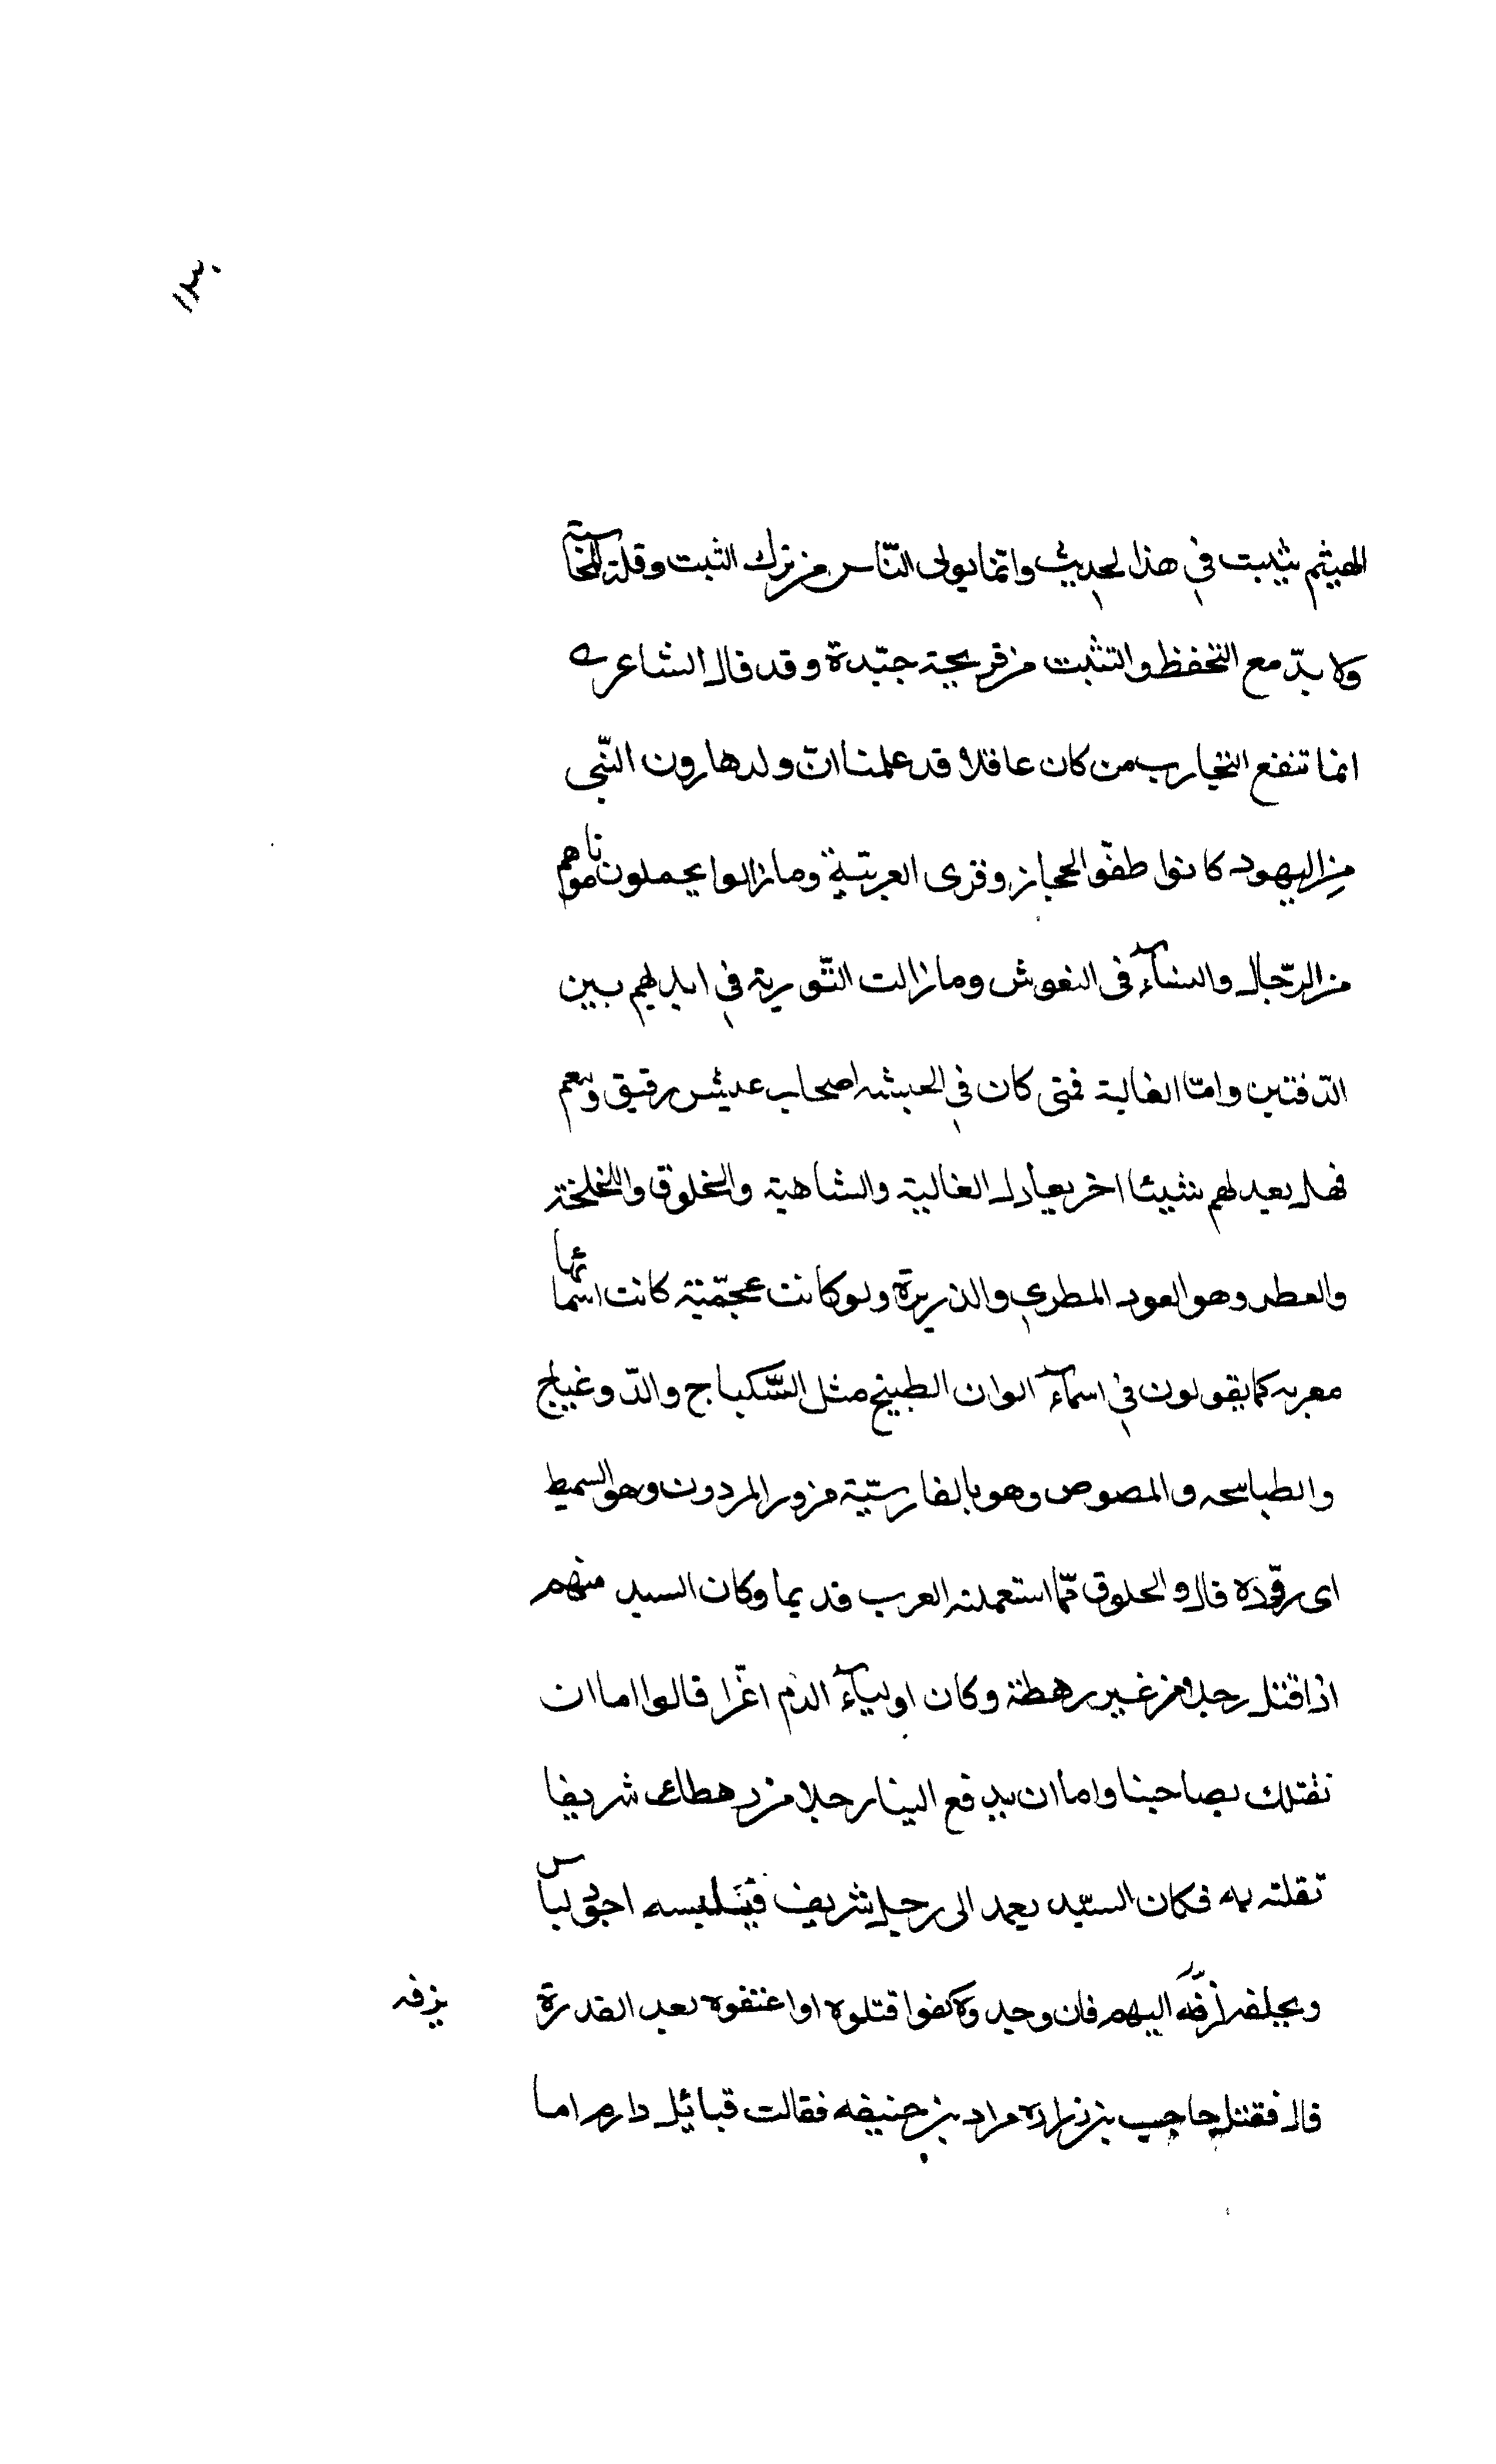 ١١٣٠
الهيثم يثبت في هذا الحديث وانما يولى النّاس من ترك التثبت وقلة المحاسبة
ولا بدّ مع التحفظ والتثبت من قريحة جيّدة وقد قال الشاعر
انما تنفع التجارب من كان عاقلا قد علمنا انّ ولد هارون النّبي
من اليهود كانوا طفّوا الحجاز وقرى العربيّة وما زالوا يحملون موتاهم
من الرّجال والنسآء في النعوش وما زالت التّورية في ايديهم بين
الدّفتين وامّا الغالية فمتى كان في الحبشه اصحاب عيش رقيق وتنعم
فهل بعد لهم شيئا اخر يعادل الغالية والشاهية والخلوق واللخلخة
والعطر وهو العود المطرى والذريرة ولو كانت عجمّية كانت اسمائها
معربه كما يقولون في اسمآء الوان الطبيخ مثل السّكباج والدّوغباج
والطباسحه والمصوص وهو بالفارسيّة مزور المردون وهو السميط
اى رقوده قال والخلوق ممّا استعملته العرب قديما وكان السيد منهم
اذا قتل رجلا من غير رهطه وكان اوليآء الدم اعزّا قالوا اما ان
نقتلك بصاحبنا واما ان يدفع الينا رجلا من رهطك شريفا
نقلته به فكان السيّد يعمد الى رجل شريف فيلبسه اجود لباس
ويخلقه ازفّه اليهم فان وجدوه كفوا قتلوه او اعتقوه بعد القدرة
يزفه
قال فقتل حاجب بن زراره مراد بن حنيفه فقالت قبائل دارم اما